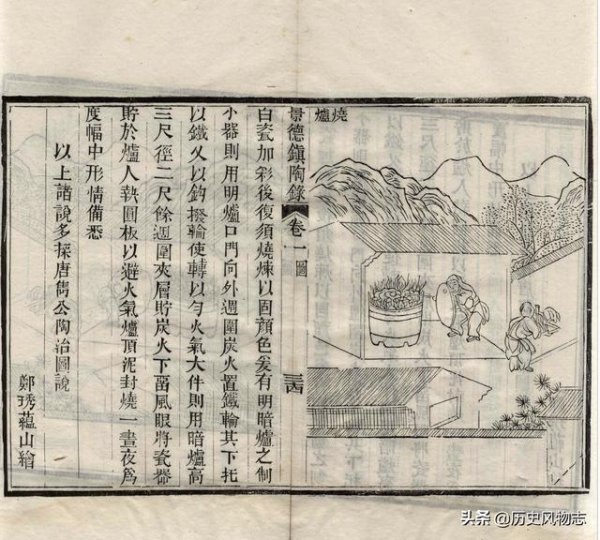 燒爐
景德鎮陶錄 卷一 圖
白瓷加彩後復須燒煉以固顏色爰有明暗爐之制
小器則用明爐口門向外週圍炭火置鐵輪其下托
以鐵乂以鈎撥輪使轉以勻火氣大件則用暗爐高
三尺徑二尺餘週圍夾層貯炭火下畱風眼將瓷器
貯於爐人執圓板以避火氣爐頂泥封燒一晝夜爲
度幅中形情備悉
以上諸說多採唐雋公陶冶圖說
鄭琇蘊山繪
头条 @历史风物志